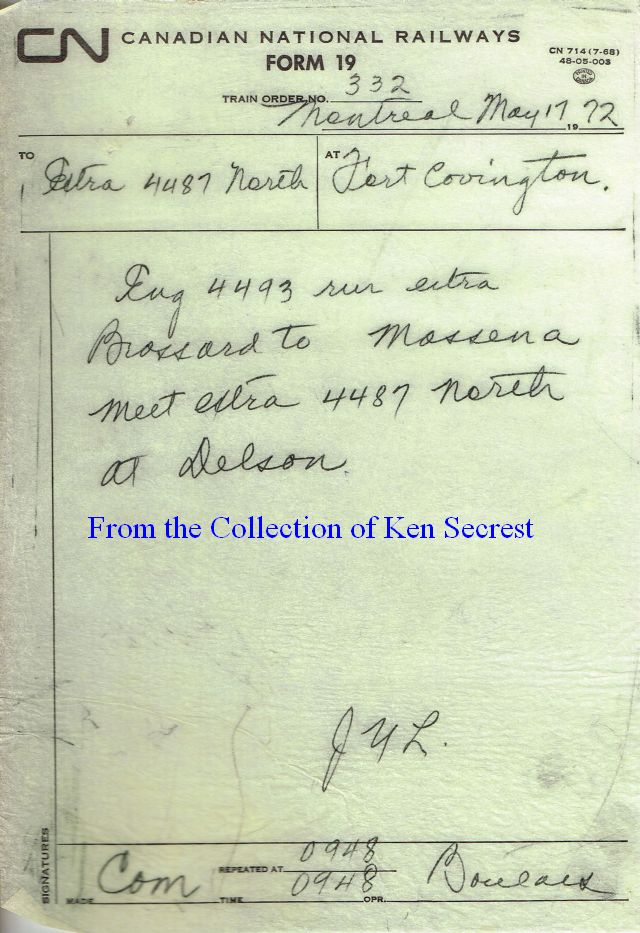 CN CANADIAN NATIONAL RAILWAYS
FORM 19
CN 714 (7-68)
48-05-003
TRAIN ORDER NO. 332
Montreal May 17 1972
TO Extra 4487 North
AT Fort Covington.
Eng 4493 run extra
Brossard to Massena
meet extra 4487 north
at Delson.
From the Collection of Ken Secrest
SIGNATURES
MADE Com
REPEATED AT 0948
TIME 0948
OPR.